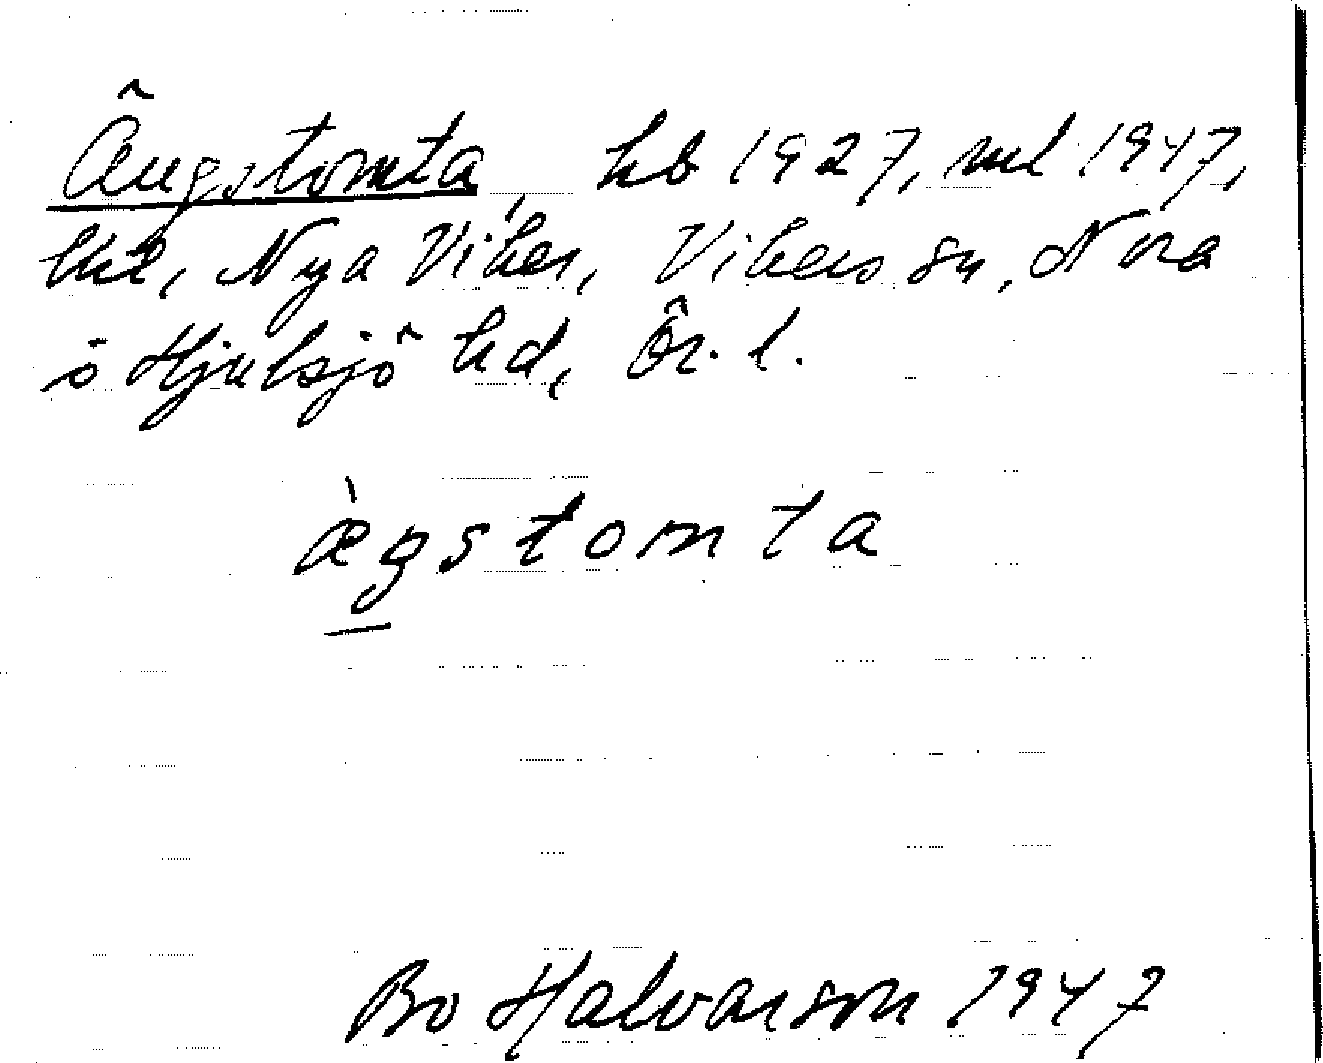 Ängstomta, hb 1927, ml 1947,
lht, Nya Viker, Vikers sn, Nora
o Hjulsjö hd, Ör. l.
ægstomta
Bo Halvarson 1947